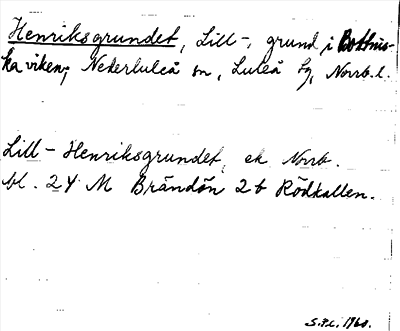 Henriksgrundet, Lill-, grund i Bottnis-
ka viken, Nederluleå sn, Luleå tg, Norrb. l.
Lill-Henriksgrundet, ek Norrb.
bl. 24 M Brändön 2 b Rödkallen.
1960.